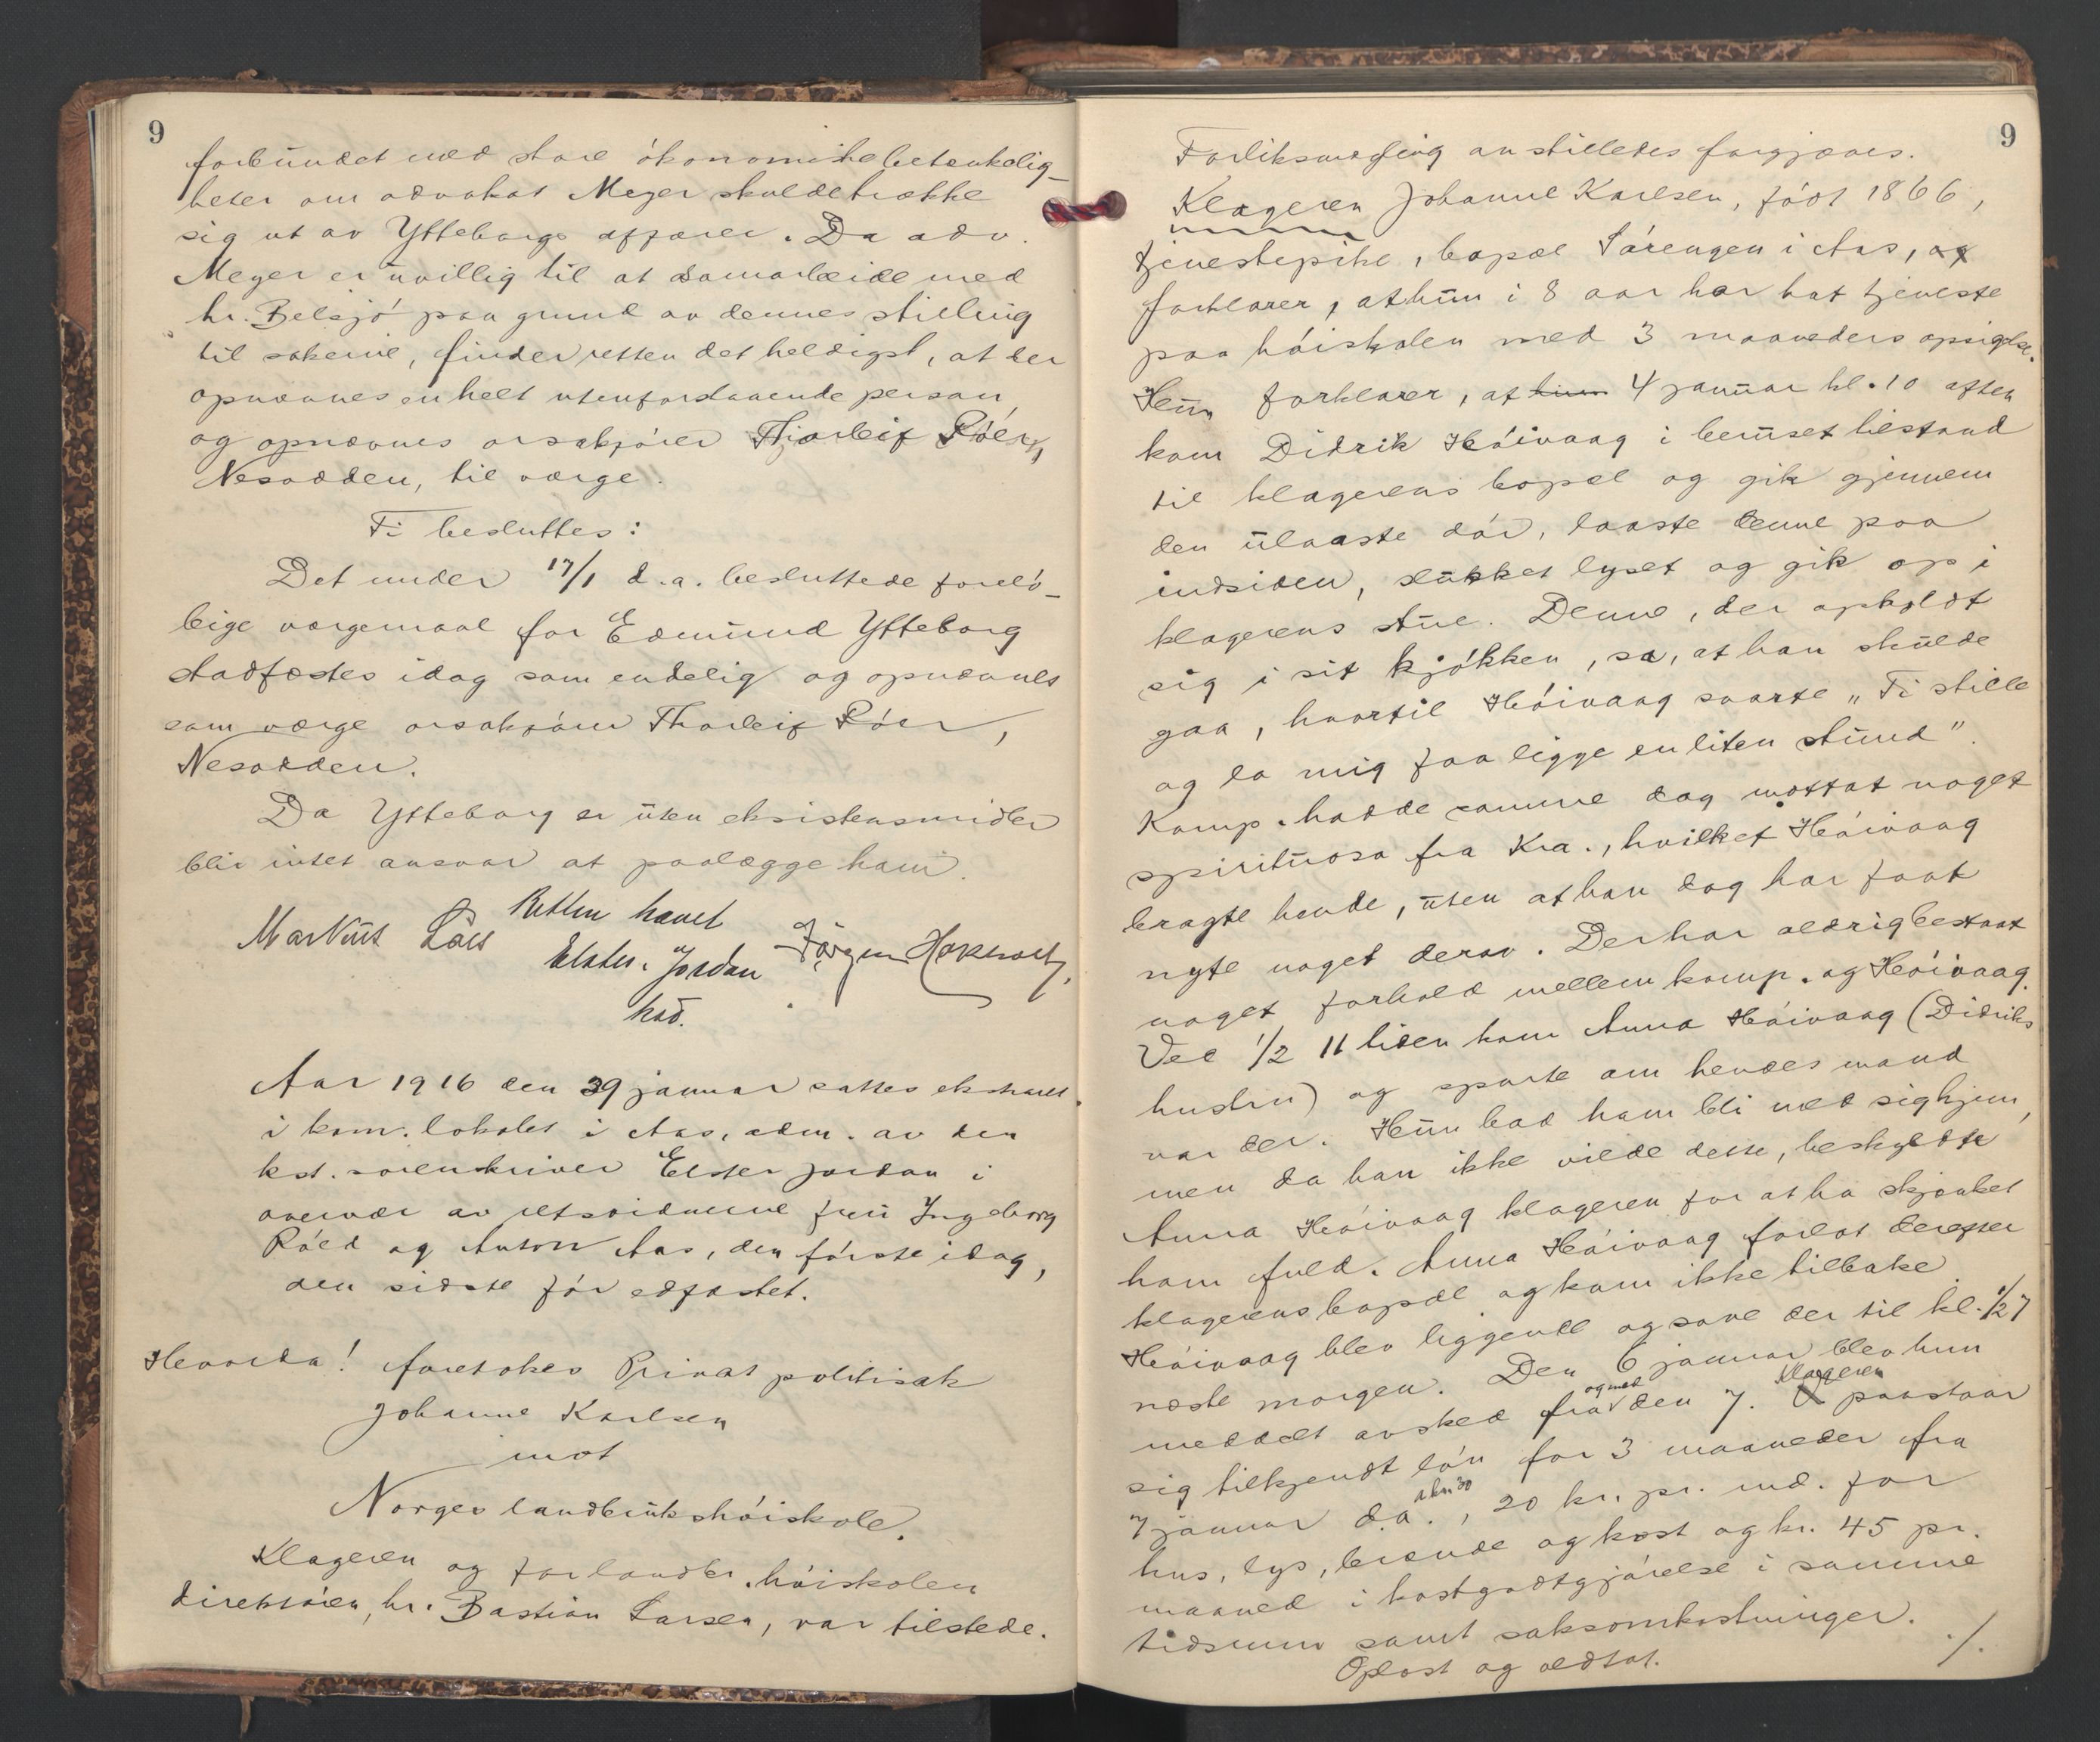 9
forbundet med store ökonomiske betænkelig-
heter om advokat Meyer skulde trække
sig ut av Ytteborgs affærer. Da adv.
Meyer er uvillig til at samarbeide med
hr. Belsjö paa grund av dennes stilling
til sakerne, finder retten det heldigst, at der
opnævnes en helt utenforstaaende person,
og opnævnes orsakfører Thorleif Röer,
Nesodden, til værge.
Ti besluttes:
Det under 17/1 d.a. besluttede forelö-
bige værgemaal for Edmund Ytteborg
stadfæstes idag som endelig og opnævnes
som værge orsakförer Thorleif Röer,
Nesodden.
Da Ytteborg er uten eksistensmidler
blir intet ansvar at paalægge ham.
Retten hævet
Markus Laes Elster Jordan Jörgen
kst.
Aar 1916 den 29 januar sattes ekstraret
i kom. lokalet i Aas, adm. av den
kst. sorenskriver Elster Jordan i
overvær av retsvidnerne fru Ingeborg
Röed og Anton Aas, den förste idag,
den sidste för edfæstet.
Hvorda! foretokes Privat politisak
Johanne Karlsen
mot
Norges landbrukshöiskole.
Klageren og for landbr. höiskolen
direktören, hr. Bastian Larsen, var tilstede.
9
Forliksmægling anstilledes forgjæves.
Klageren Johanne Karlsen, född 1866,
tjenestepike, bopæl Sörengen i Aas, og
forklarer, at hun i 8 aar har hat tjeneste
paa höiskolen med 3 maaneders opsigelse.
Hun forklarer, at hun 4 januar kl. 10 aften
kom Didrik Höivaag i beruset tilstand
til klagerens bopæl og gik gjennem
den ulaaste dör, laaste denne paa
indsiden, slukket lyset og gik op i
klagerens stue. Denne, der opholdt
sig i sit kjökken, sa, at han skulde
gaa, hvortil Höivaag svarte „Ti stille
og la mig faa ligge en liten stund".
Komp. hadde samme dag mottat noget
spirituosa fra Kra., hvilket Höivaag
bragte hende, uten at han dog har faat
nyte noget derav. Der har aldrig bestaat
noget forhold mellem komp. og Höivaag.
Ved 1/2 11 tiden kom Anna Höivaag (Didriks
hustru) og spurte om hendes mand
var der. Hun bad ham bli med sig hjem,
men da han ikke vilde dette, beskyldte
Anna Höivaag klageren for at ha skjænket
ham fuld. Anna Höivaag forlot derefter
klagerens bopæl og kom ikke tilbake.
Höivaag blev liggende og sove der til kl. 1/2 7
næste morgen. Den 6 januar blev hun
meddelt avsked fra og med den 7. Klageren paastaar
sig tilkjendt lön for 3 maaneder fra
7 januar d.a. a kr. 30, 20 kr. pr. md. for
hus, lys, brænde og kost og kr. 45 pr.
maaned i kostgodtgjörelse i samme
tidsrum samt saksomkostninger.
Oplæst og vedtat. ./.